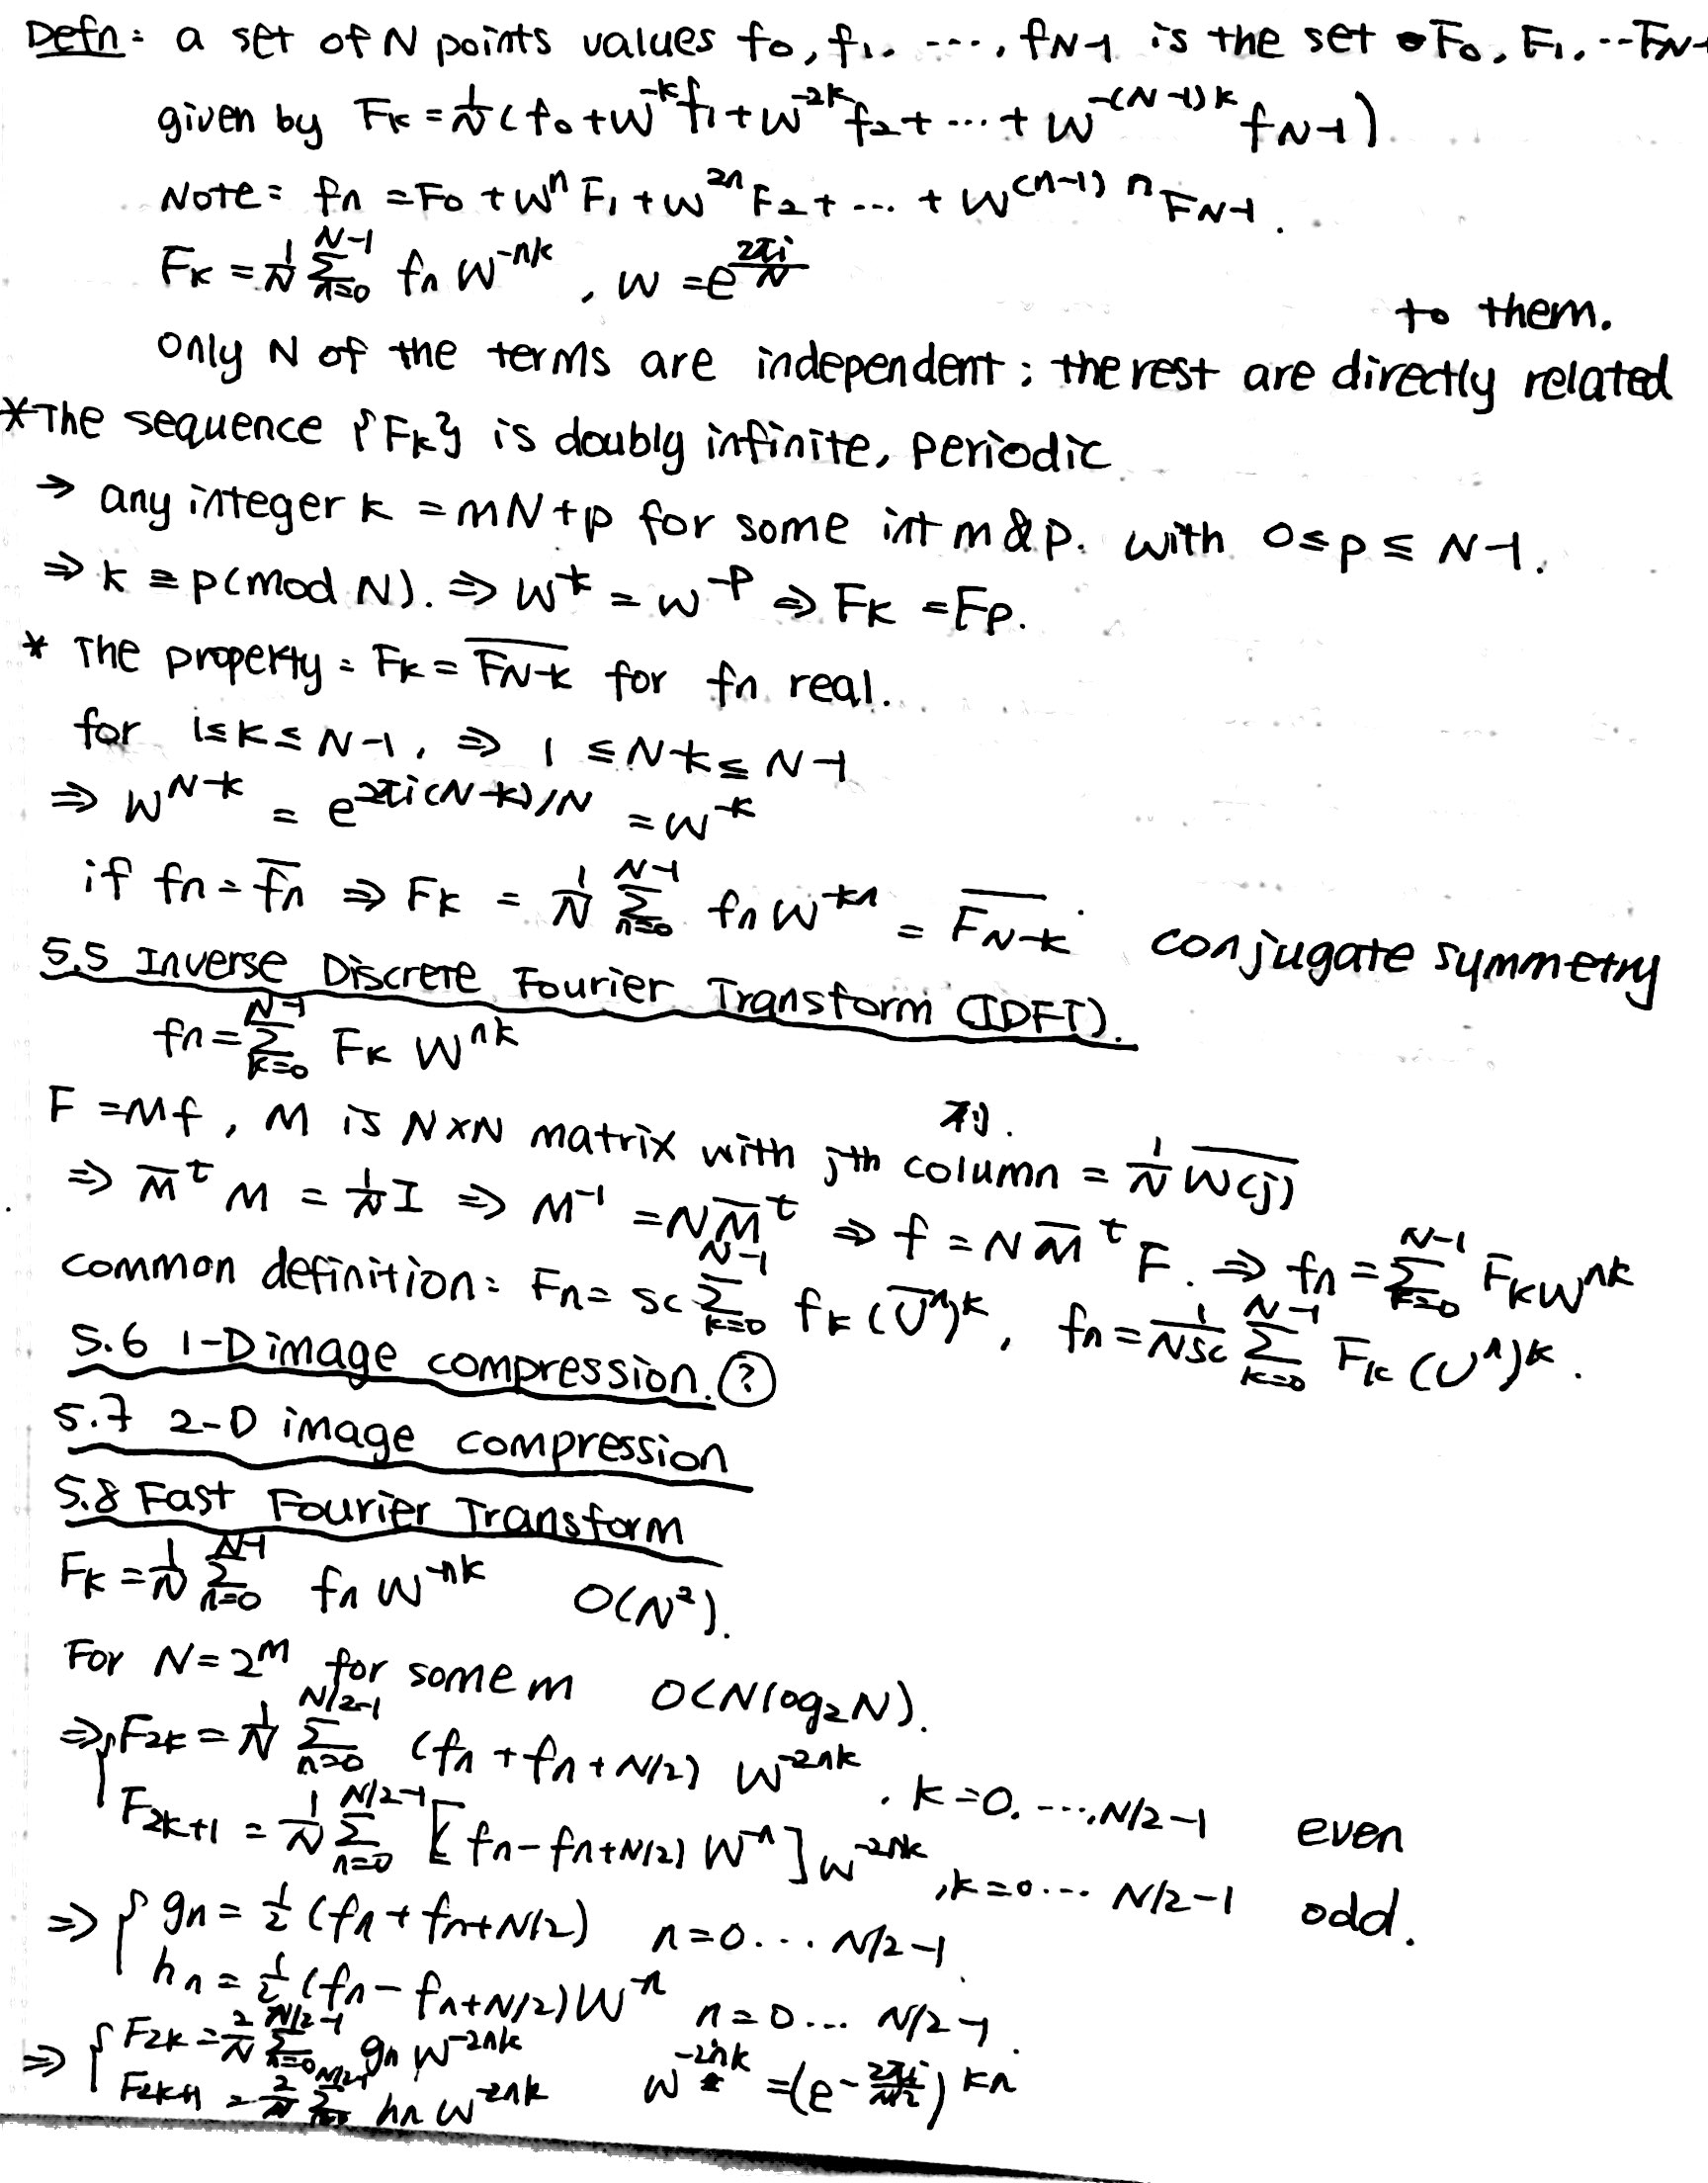 Defn: a set of N points values f₀, f₁, ..., f_{N-1} is the set F₀, F₁, ... F_{N-1}
given by F_k = 1/N (f₀ + W^{-k} f₁ + W^{-2k} f₂ + ... + W^{-(N-1)k} f_{N-1}).
Note: f_n = F₀ + W^n F₁ + W^{2n} F₂ + ... + W^{(n-1)n} F_{N-1}.
F_k = 1/N Σ_{n=0}^{N-1} f_n W^{-nk}, W = e^{2πi/N}
to them.
only N of the terms are independent; the rest are directly related
*The sequence {F_k} is doubly infinite, periodic
→ any integer k = mN+p for some int m & p. with 0 ≤ p ≤ N-1.
⇒ k ≡ p (mod N). ⇒ W^{-k} = W^{-p} ⇒ F_k = F_p.
* The property: F_k = \overline{F_{N-k}} for f_n real.
for 1 ≤ k ≤ N-1, ⇒ 1 ≤ N-k ≤ N-1
⇒ W^{N-k} = e^{2πi(N-k)/N} = W^{-k}
if f_n = \overline{f_n} ⇒ F_k = 1/N Σ_{n=0}^{N-1} f_n W^{-kn} = \overline{F_{N-k}} conjugate symmetry
5.5 Inverse Discrete Fourier Transform (IDFT).
f_n = Σ_{k=0}^{N-1} F_k W^{nk}
列.
F = Mf, M is N×N matrix with jth column = 1/N \overline{W(j)}
⇒ \overline{M}^t M = 1/N I ⇒ M^{-1} = N\overline{M}^t ⇒ f = N\overline{M}^t F. ⇒ f_n = Σ_{k=0}^{N-1} F_k W^{nk}
common definition: F_n = sc Σ_{k=0}^{N-1} f_k (\overline{U}^n)^k, f_n = 1/(N sc) Σ_{k=0}^{N-1} F_k (U^n)^k.
5.6 1-D image compression. ?
5.7 2-D image compression
5.8 Fast Fourier Transform
F_k = 1/N Σ_{n=0}^{N-1} f_n W^{-nk} O(N²).
For N = 2^m for some m O(N log₂ N).
⇒ { F_{2k} = 1/N Σ_{n=0}^{N/2-1} (f_n + f_{n+N/2}) W^{-2nk}, k = 0, ..., N/2-1 even
F_{2k+1} = 1/N Σ_{n=0}^{N/2-1} [f_n - f_{n+N/2}) W^{-n}] W^{-2nk}, k = 0 ... N/2-1 odd.
⇒ { g_n = 1/2 (f_n + f_{n+N/2}) n = 0 ... N/2-1.
h_n = 1/2 (f_n - f_{n+N/2}) W^{-n} n = 0 ... N/2-1.
⇒ { F_{2k} = 2/N Σ_{n=0}^{N/2-1} g_n W^{-2nk}
F_{2k+1} = 2/N Σ_{n=0}^{N/2-1} h_n W^{-2nk} W^{-2nk} = (e^{-2πi/(N/2)})^{kn}